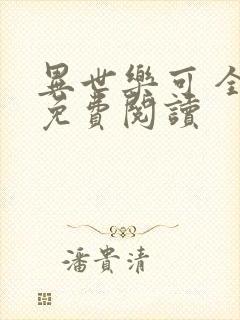 異世樂可 全
免費閱讀
潘貴清